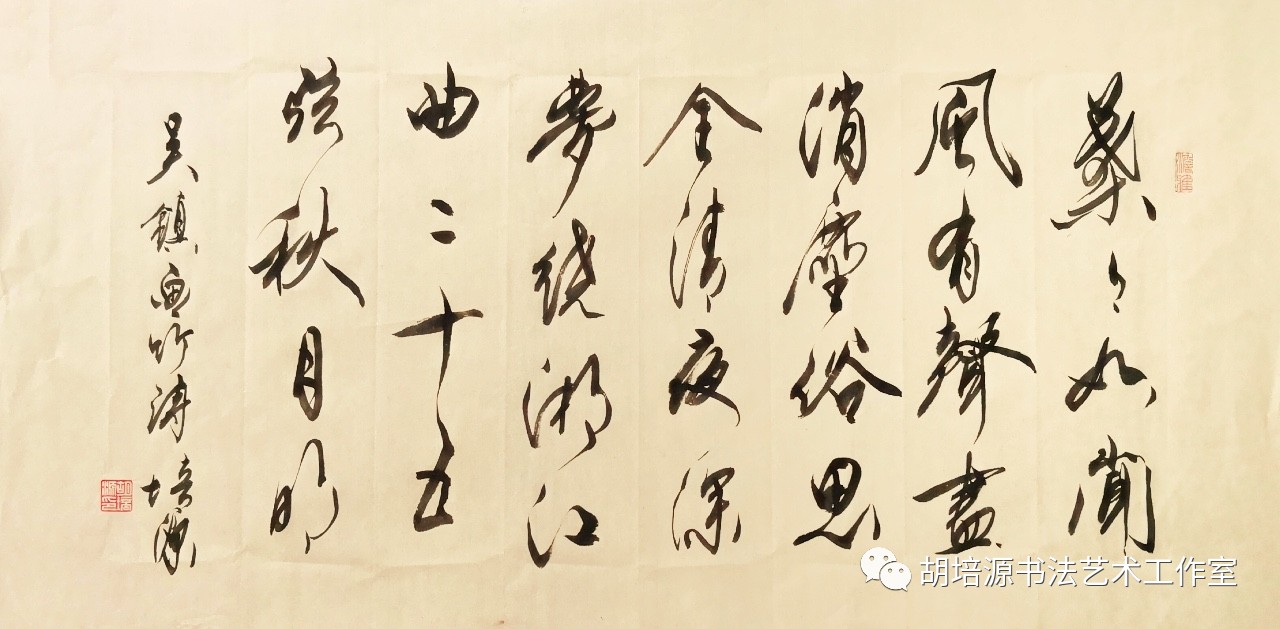 葉々如聞
風有聲盡
消塵俗思
全清夜深
夢繞湘江
曲二十五
弦秋月明
吴鎮画竹詩 培源
胡培源书法艺术工作室